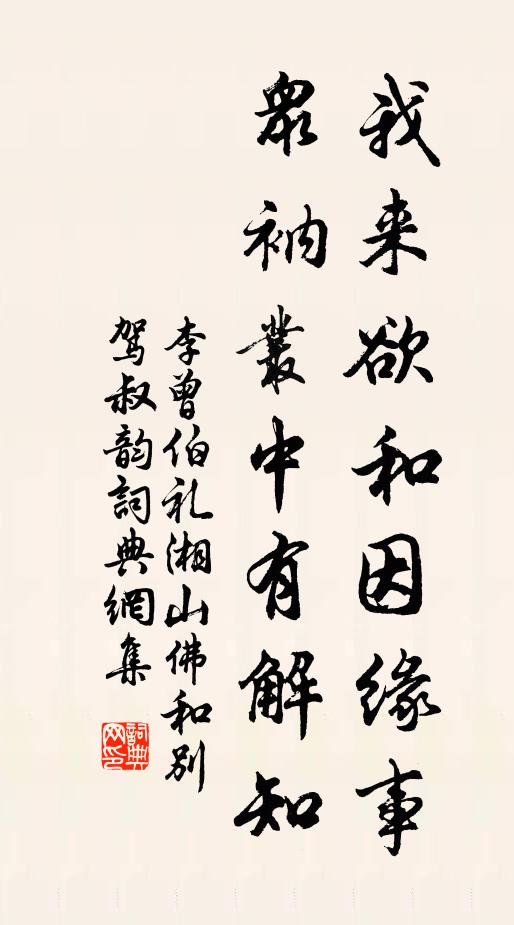 我来欲和因緣事
眾衲叢中有解知
李曾伯礼湘山佛和别
驾叔韵詞典網集
詞典网印